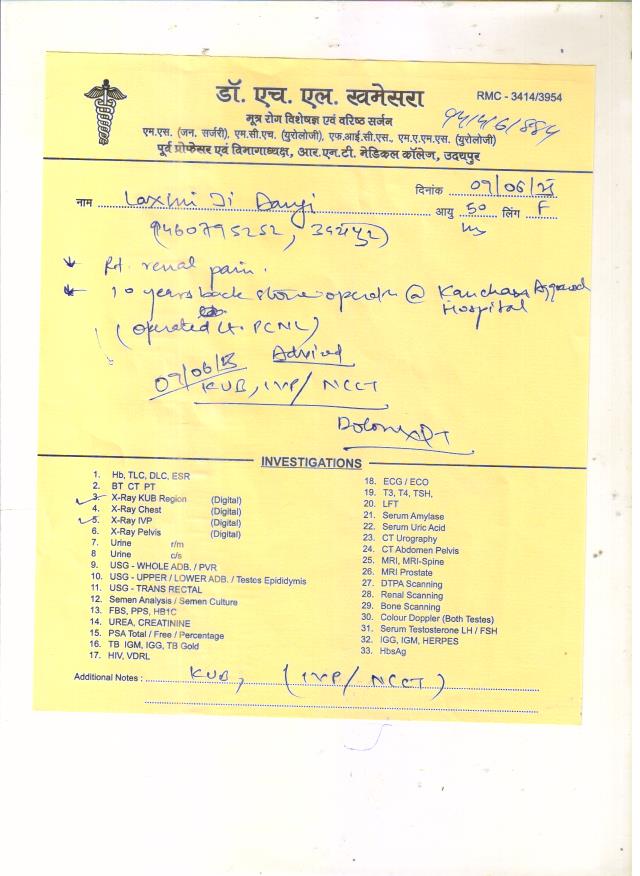 डॉ. एच. एल. खमेसरा
RMC - 3414/3954
मूत्र रोग विशेषज्ञ एवं वरिष्ठ सर्जन
एम.एस. (जन. सर्जरी), एम.सी.एच. (युरोलोजी), एफ.आई.सी.एस., एम.ए.एम.एस. (युरोलोजी)
पूर्व प्रोफेसर एवं विभागाध्यक्ष, आर.एन.टी. मेडिकल कॉलेज, उदयपुर
दिनांक 09/06/
नाम Laxmi Ji Dangi आयु 50 लिंग F
9460795252, उदयपुर
Rt. renal pain.
10 years back stone operatn @ Kanchan Aggrawal
Hospital
(operated Lt. PCNL)
Advised
09/06/
KUB, IVP/ NCCT
INVESTIGATIONS
1. Hb, TLC, DLC, ESR
2. BT CT PT
3. X-Ray KUB Region (Digital)
4. X-Ray Chest (Digital)
5. X-Ray IVP (Digital)
6. X-Ray Pelvis (Digital)
7. Urine r/m
8 Urine c/s
9. USG - WHOLE ADB. / PVR
10. USG - UPPER / LOWER ADB. / Testos Epididymis
11. USG - TRANS RECTAL
12. Semen Analysis / Semen Culture
13. FBS, PPS, HB1C
14. UREA, CREATININE
15. PSA Total / Free / Percentage
16. TB IGM, IGG, TB Gold
17. HIV, VDRL
18. ECG / ECO
19. T3, T4, TSH,
20. LFT
21. Serum Amylase
22. Serum Uric Acid
23. CT Urography
24. CT Abdomen Pelvis
25. MRI, MRI-Spine
26. MRI Prostate
27. DTPA Scanning
28. Renal Scanning
29. Bone Scanning
30. Colour Doppler (Both Testes)
31. Serum Testosterone LH / FSH
32. IGG, IGM, HERPES
33. HbsAg
Additional Notes : KUB, (IVP/ NCCT)